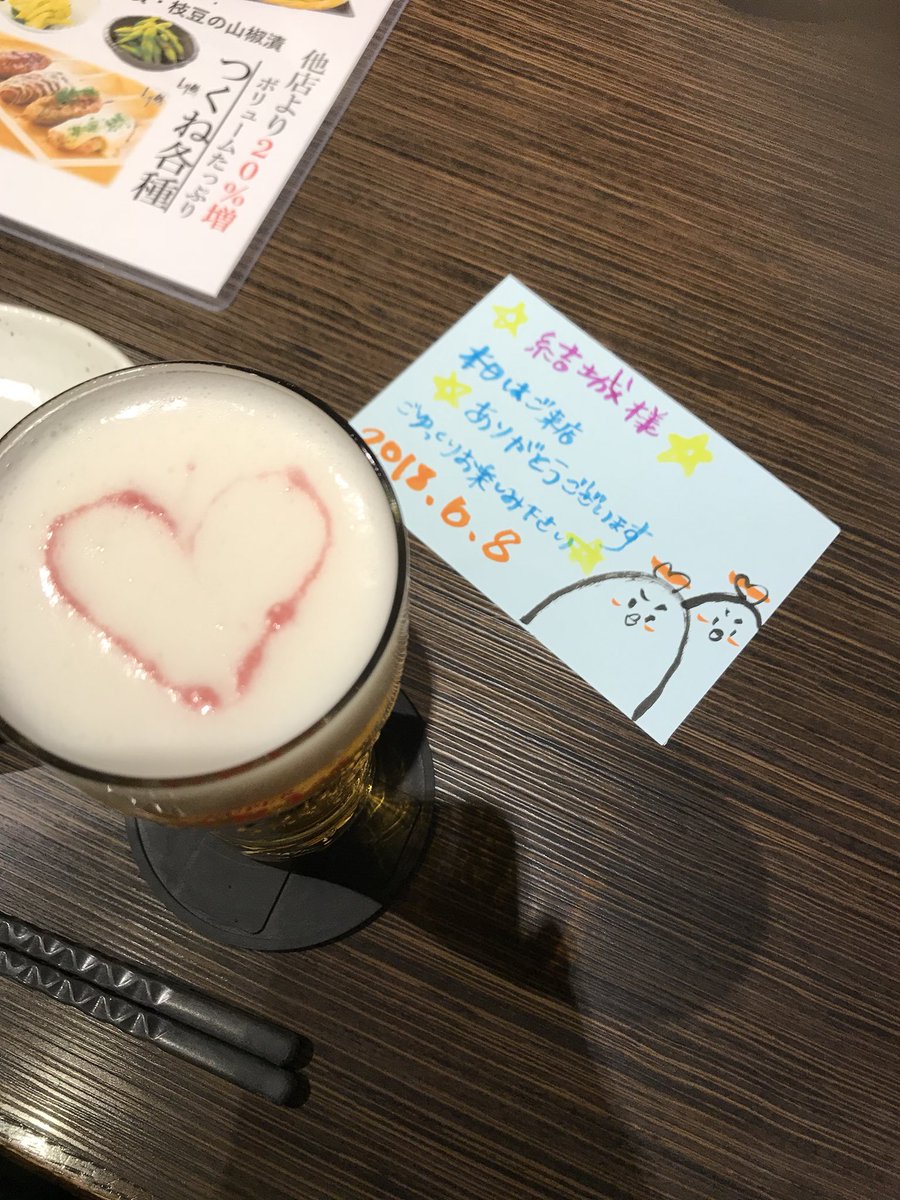 ・枝豆の山椒漬
他店より20%増
ボリュームたっぷり
つくね各種
結城様
本日はご来店
ありがとうございます
ごゆっくりお楽しみ下さい
2018.6.8